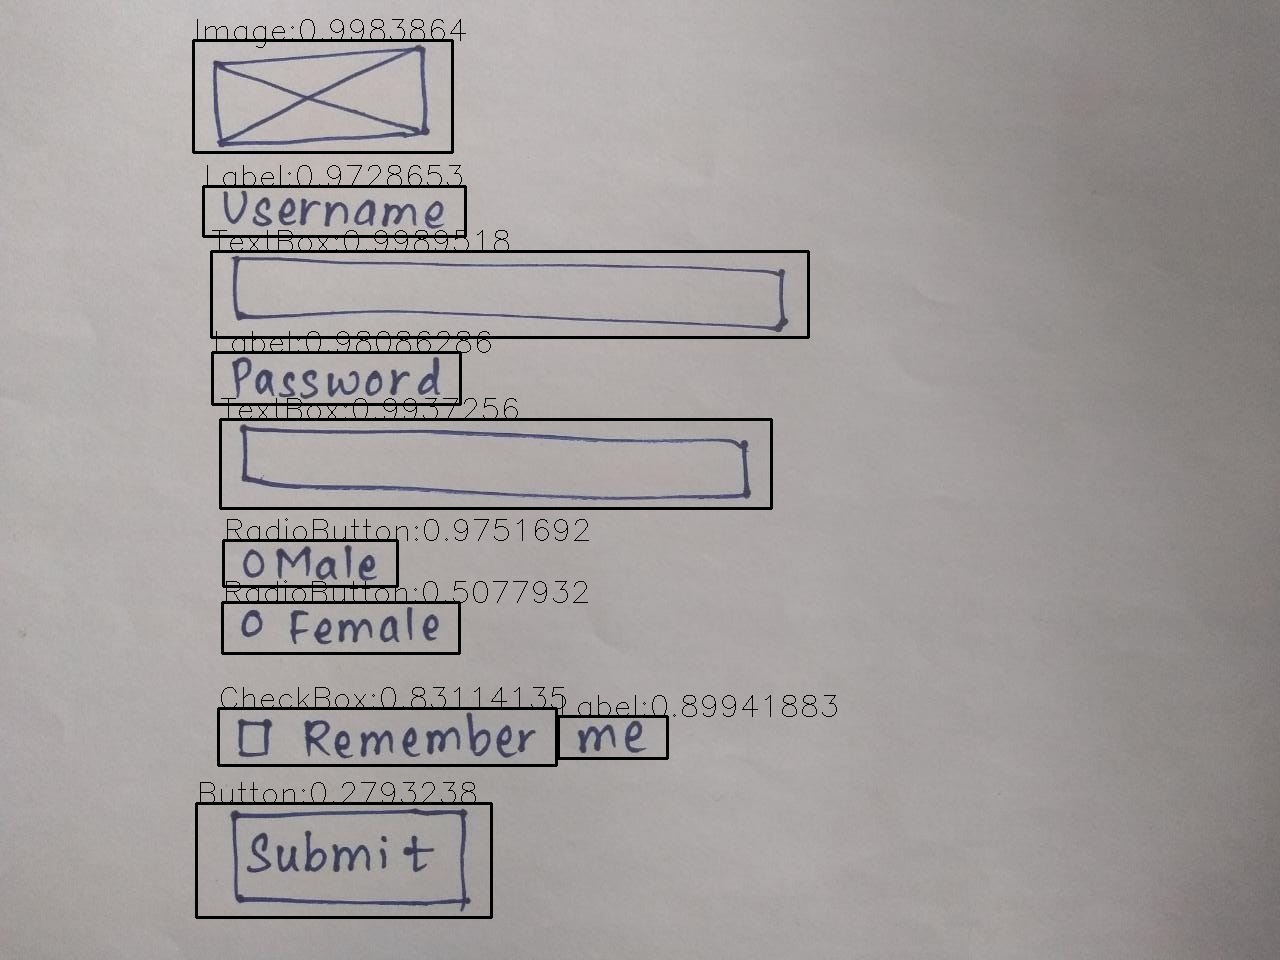 Image:0.9983864
Label:0.9728653
Username
TextBox:0.9989518
Label:0.98086286
Password
TextBox:0.9937256
RadioButton:0.9751692
O Male
RadioButton:0.5077932
O Female
CheckBox:0.83114135 Label:0.89941883
☐ Remember me
Button:0.2793238
Submit